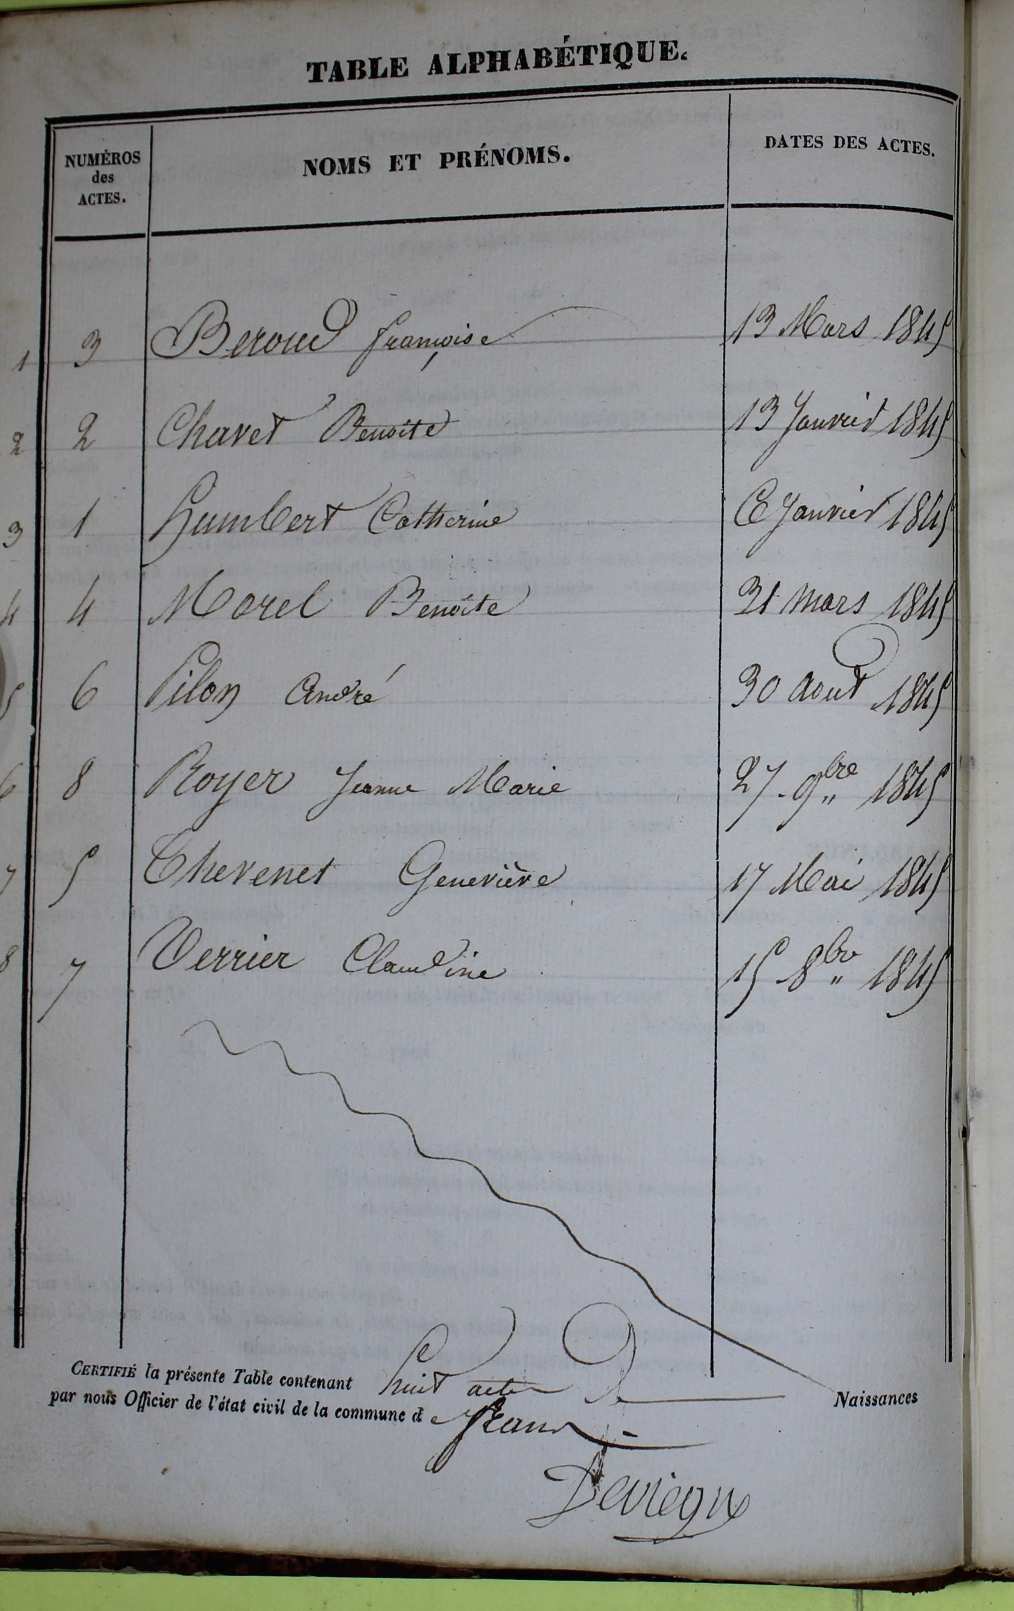 TABLE ALPHABÉTIQUE.
NUMÉROS des ACTES. NOMS ET PRÉNOMS. DATES DES ACTES.
1 3 Beroud françoise 13 Mars 1845
2 2 Chavet Benoîte 13 Janvier 1845
3 1 humbert Catherine Janvier 1845
4 4 Morel Benoîte 31 mars 1845
5 6 Pilon André 30 Aout 1845
6 8 Royer Jeanne Marie 27 9bre 1845
7 5 Thevenet Geneviève 17 Mai 1845
8 7 Verrier Claudine 15 8bre 1845
CERTIFIÉ la présente Table contenant huit actes De Naissances
par nous Officier de l'état civil de la commune d